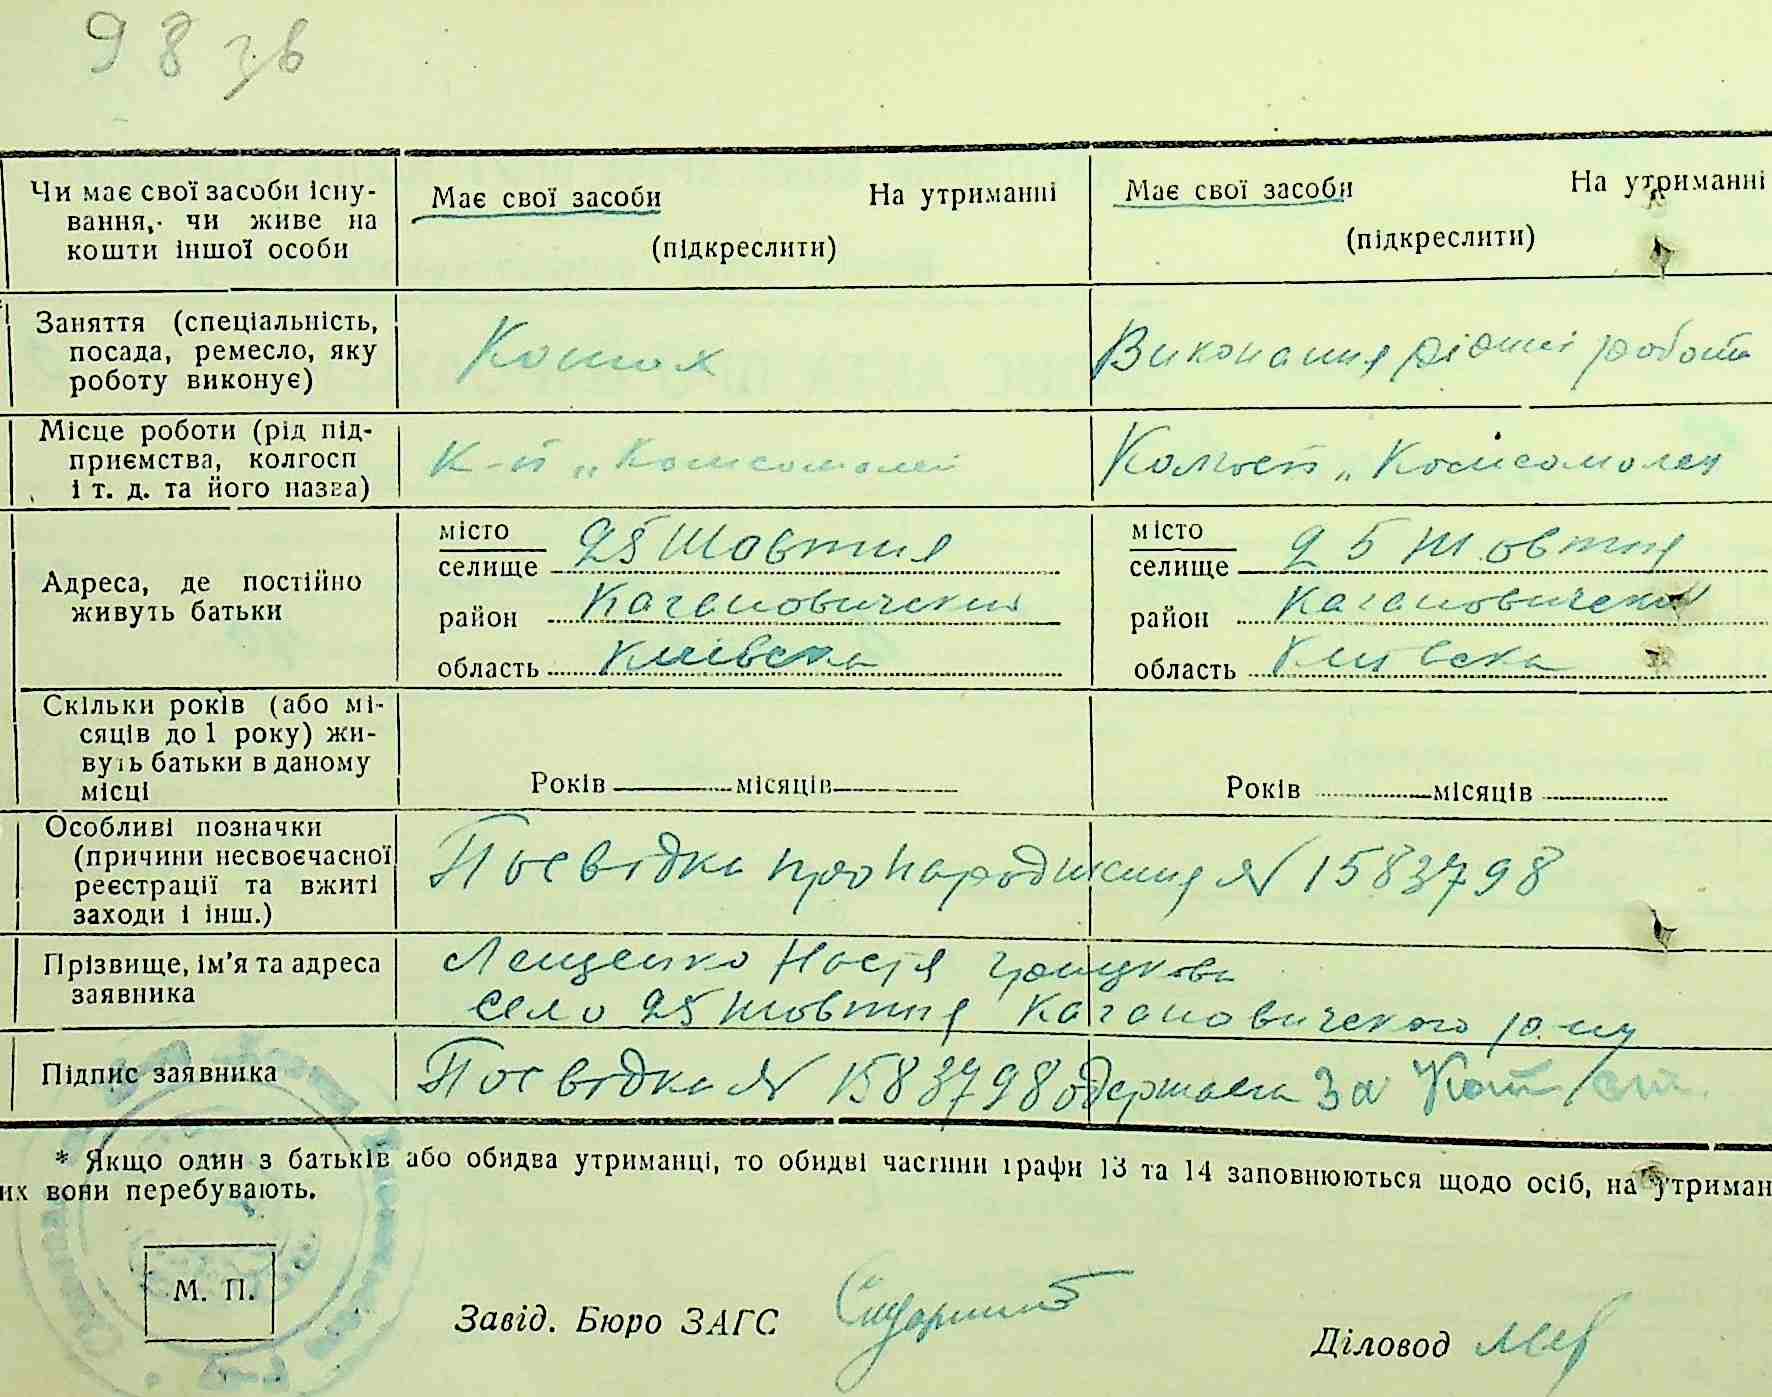 98 зв
Чи має свої засоби існу-
вання, чи живе на
кошти іншої особи
Має свої засоби На утриманні
(підкреслити)
Має свої засоби На утриманні
(підкреслити)
Заняття (спеціальність,
посада, ремесло, яку
роботу виконує)
Конюх
Виконання різної роботи
Місце роботи (рід під-
приємства, колгосп
і т. д. та його назва)
К-п „Комсомолец
Колгосп „Комсомолец
Адреса, де постійно
живуть батьки
місто
селище 25 Жовтня
район Кагановический
область Київска
місто
селище 25 Жовтня
район Кагановический
область Київска
Скільки років (або мі-
сяців до 1 року) жи-
вуть батьки в даному
місці
Років місяців
Років місяців
Особливі позначки
(причини несвоєчасної
реєстрації та вжиті
заходи і інш.)
Посвідка про народження № 1583798
Прізвище, ім'я та адреса
заявника
Лещенко Настя
село 25 Жовтня Кагановичского р-ну
Підпис заявника
Посвідка № 1583798 одержала За
* Якщо один з батьків або обидва утриманці, то обидві частини графи 13 та 14 заповнюються щодо осіб, на утриман
их вони перебувають.
М. П.
Завід. Бюро ЗАГС
Діловод